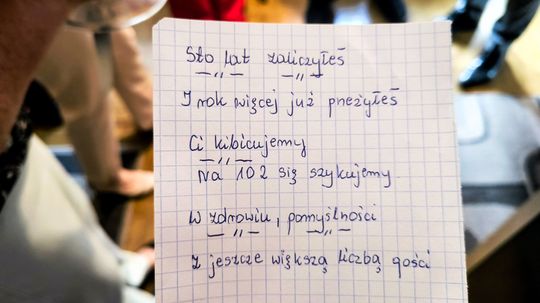 Sto lat zaliczyłeś
— ,, — — ,, —
I rok więcej już przeżyłeś
Ci kibicujemy
— ,, —
Na 102 się szykujemy
W zdrowiu, pomyślności
— ,, — — ,, —
Z jeszcze większą liczbą gości